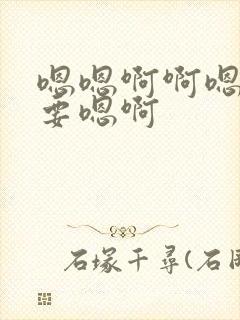 嗯嗯啊啊嗯
要嗯啊
石塚千尋(石原